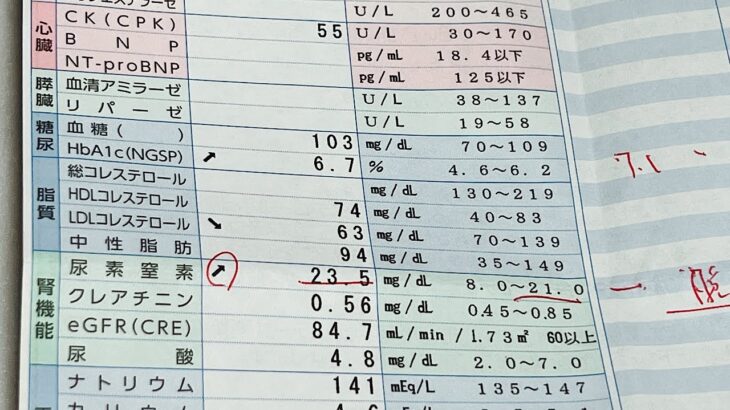 U/L 200～465
心臓 CK(CPK) 55 U/L 30～170
BNP pg/mL 18.4以下
NT-proBNP pg/mL 125以下
膵臓 血清アミラーゼ U/L 38～137
リパーゼ U/L 19～58
糖尿 血糖( ) 103 mg/dL 70～109
HbA1c(NGSP) ↗ 6.7 % 4.6～6.2 7.1
脂質 総コレステロール mg/dL 130～219
HDLコレステロール 74 mg/dL 40～83
LDLコレステロール ↘ 63 mg/dL 70～139
中性脂肪 94 mg/dL 35～149
腎機能 尿素窒素 ↗ 23.5 mg/dL 8.0～21.0
クレアチニン 0.56 mg/dL 0.45～0.85
eGFR(CRE) 84.7 mL/min/1.73㎡ 60以上
尿酸 4.8 mg/dL 2.0～7.0
ナトリウム 141 mEq/L 135～147
カリウム